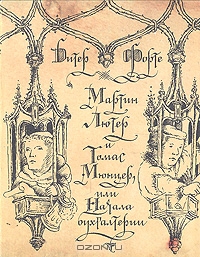 Дитер Форте
Мартин
Лютер
и
Томас
Мюнцер,
или
Начала
бухгалтерии
OZON.RU